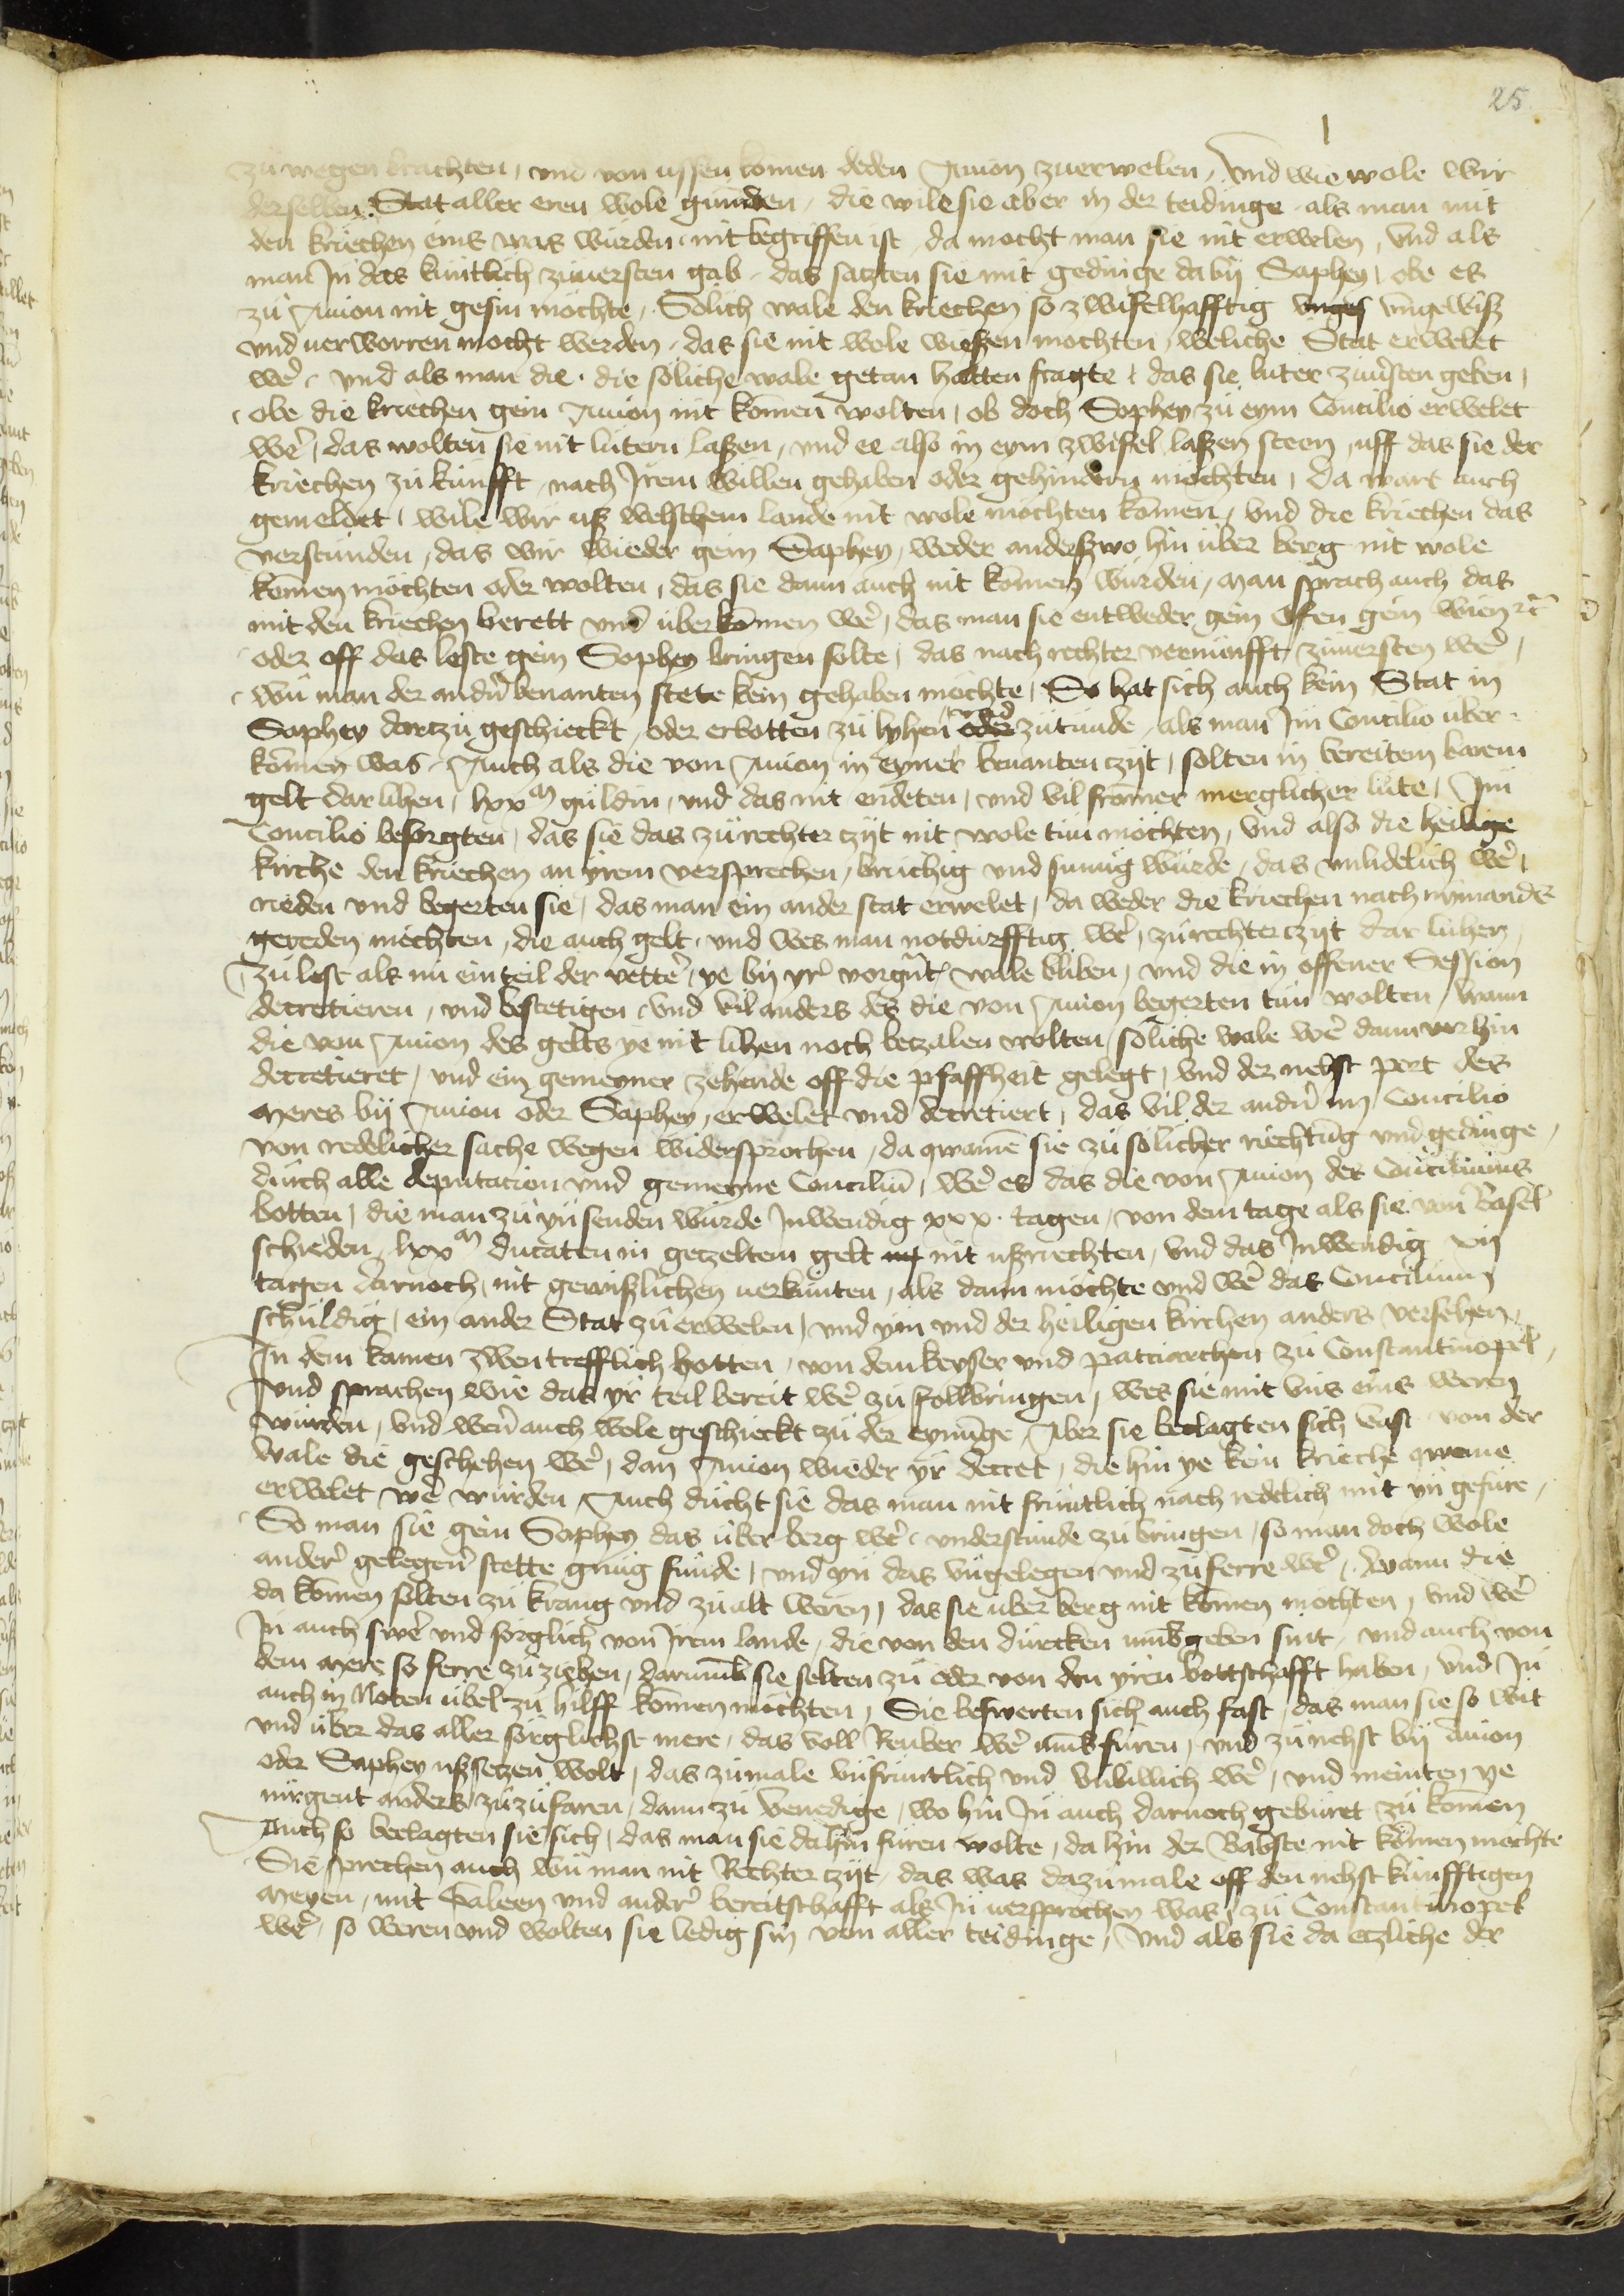 25
zu wegen brachten, vnd von ussen komen deden Auion zuerwelen, Vnd wie wole wir
derselben Stat aller eren wole gunden, die wile sie aber in der teidinge als man mit
den kriechen eins was wurden nit begriffen ist, da mocht man sie nit erwelen, Vnd als
man Jn das kuntlich zuuersten gab, das satzten sie mit gedinge daby Saphey, obe es
zu Auion nit gesin mochte, Solich wale den kriechen so zwifelhafftig vnges vngewisz
vnd uerworren mocht werden, das sie nit wole wießen mochten, weliche Stat erwelet
wer, vnd als man die, die soliche wale getan hatten fragte, das sie luter zuuersten geben,
obe die kriechen gein Auion nit komen wolten, ob doch Sophey zu eym Concilio erwelet
wer, das wolten sie nit lutern laßen, vnd ee also in eym zwifel laßen steen, uff das sie der
kriechen zukunfft nach Jrem willen gehaben oder gehindern mochten, Da wart auch
gemeldet, wile wir uß welschem lande nit wole mochten komen, vnd die kriechen das
verstunden, das wir wieder gein Saphey, weder anderßwo hin uber berg nit wole
komen mochten oder wolten, das sie dann auch nit komen wurden, man sprach auch das
mit den kriechen berett vnd uberkomen wer, das man sie entweder gein Ofen gein Wien etc
oder off das leste gein Sophey bringen solte, das nach rechter vernunfft zuuersten wer,
wu man der andern benanten stete kein gehaben mochte, So hat sich auch kein Stat in
Saphey dartzu geschickt, oder erbotten zu lyhen oder vnd zutunde, als man Jm Concilio uber
komen was, Auch als die von Auion in eyner benanten zyt, solten in bereitem barem
gelt darlihen, lxxm guldin, vnd das nit endeten, vnd vil fromer merglicher lute, Jm
Concilio besorgten, das sie das zu rechter zyt nit wole tun mochten, vnd also die heilige
kirche den kriechen an yrem versprechen, bruchig vnd sumig wurde, das vnlidelich wer,
rieden vnd begerten sie, das man ein ander stat erwelet, da weder die kriechen nach nymandes
gereden mochten, die auch gelt, vnd wes man notdurfftig wer, zu rechter zyt dar luhen,
Zu lest als nu ein teil der vetter, ye by yr vorgnt wale bliben, vnd die in offener Session
decretieren, vnd bestetigen, vnd vil anders des die von Auion begerten tun wolten, wann
die von Auion des gelts ye nit lihen noch betzalen wolten, soliche wale wer dann vorhin
decretieret, vnd ein gemeyner zehende off die pfaffheit gelegt, vnd der nehst port des
meres by Auion oder Saphey, erwelet vnd decretiert, das vil der andern im Concilio
von redelicher sache wegen widersprochen, da qwamen sie zu solicher riechtung vnd gedinge,
durch alle deputacion vnd gemeyne Concilium, wer es das die von Auion des Conciliums
botten, die man zu yn senden wurde Jnwendig xxx tagen, von dem tage als sie von Basel
schieden, lxxm ducaten in getzeltem gelt nit ußriechten, vnd das Jnwendig xij
tagen darnoch, nit gewißlichen uerkunten, als dann mochte vnd wer das Concilium
schuldig, ein ander Stat zu erwelen, vnd ym vnd der heiligen kirchen anders versehen,
Jn dem kamen zwen trefflich botten, von dem keyser vnd patriarchen zu Constantinopel,
vnd sprachen wie das yr teil bereit wer zu follbringen, wes sie mit vns eins weren
wurden, vnd wern auch wole geschickt zu der eynunge, Aber sie beclagten sich vast von der
wale die geschehen wer, dan Auion wieder yr decret, die hin ye kein krieche qweme
erwelet wer wurden, Auch ducht sie das man nit fruntlich nach redelich mit yn gefure,
So man sie gein Saphey das uber berg wer, vnderstunde zu bringen, so man doch wole
ander gelegen stette gnug funde, vnd yn das vngelegen vnd zu ferre wer, wann die
da komen solten zu krang vnd zu alt weren, das sie uber berg nit komen mochten, vnd wer
Jn auch swer vnd sorglich von Jrem lande, die von den durcken vmbgeben sint, vnd auch von
dem mere so ferre zu ziehen, darumb sie selten zu oder von den yren bottschafft haben, vnd Jn
auch in Noten ubel zu hilff komen mochten, Sie beswerten sich auch fast, das man sie so wit
vnd uber das aller sorglichst mere, das voll Reuber wer vmbfuren, vnd zu nehst by Auion
oder Saphey ußsetzen wolt, das zumale vnfruntlich vnd vnbillich wer, vnd meinten ye
nirgent anders zuzufaren, dann zu Venedige, wo hin Jn auch darnoch geburet zu komen
Auch so beclagten sie sich, das man sie dahin furen wolte, da hin der Babste nit komen mochte
Sie sprechen auch wu man nit Rechter zyt, das was dazumale off den nehst kunfftigen
meyen, mit Galeen vnd ander bereitschafft als Jn uersprochen was, zu Constantinopel
wer, so weren vnd wolten sie ledig sin von aller teidinge, Vnd als sie da etzliche der